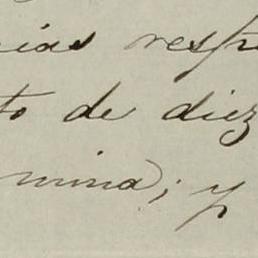 cias resp
to de diez
mina; y